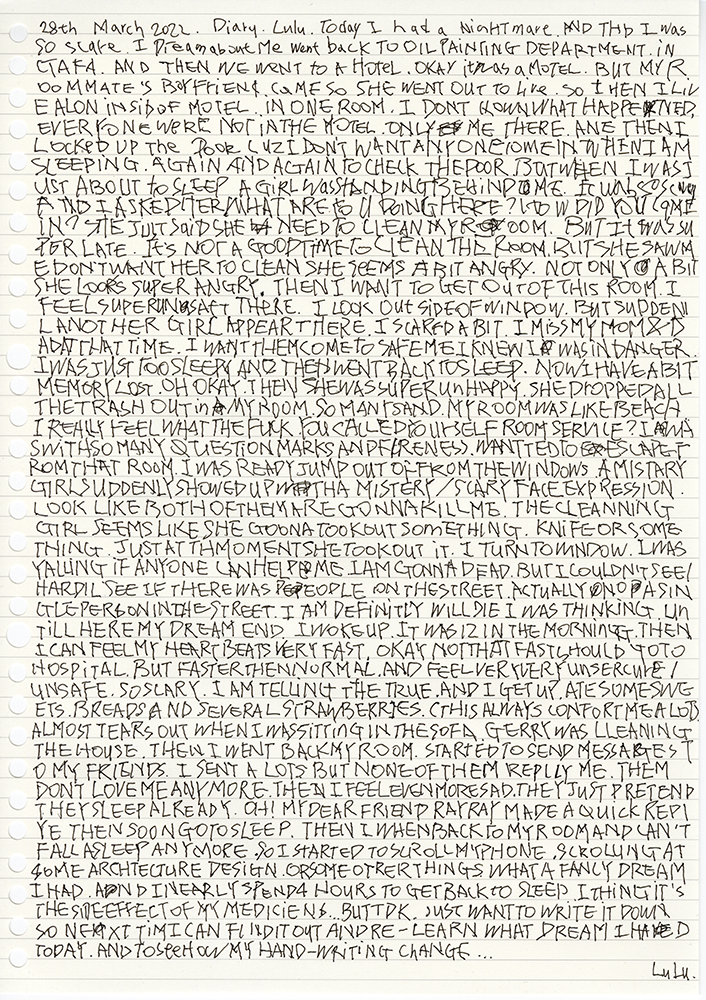 28th March 2022. Diary. Lulu. Today I had a Nightmare. AND This I was
SO Scare. I Dream about Me went back TO OIL PAINTING DEPARTMENT. IN
GAFA. AND THEN WE WENT TO A HOTEL. OKAY it was a MOTEL. BUT MY R
OOMMATE'S BOYFRIEND COME SO SHE WENT OUT to Live. SO THEN I LIV
E ALON INSIDOF MOTEL. IN ONE ROOM. I DON'T KOWN WHAT HAPPENED.
EVERYONE WERE NOT IN THE MOTEL. ONLY ME THERE. ANE THEN I
LOCKED UP THE DOOR CUZ I DON'T WANT ANYONE COME IN WHEN I AM
SLEEPING. AGAIN AND AGAIN TO CHECK THE DOOR BUT WHEN I WAS J
UST ABOUT to SLEEP A GIRL WAS STANDING BEHIND ME. IT WAS SO SCARY
AND I ASKED HER WHAT ARE YOU DOING HERE? HOW DID YOU COME
IN? SHE JUST SAID SHE NEED TO CLEAN MY ROOM. BUT IT WAS SU
PER LATE. IT'S NOT A GOOD TIME TO CLEAN THE ROOM. BUT SHE SAW M
E DON'T WANT HER TO CLEAN SHE SEEMS A BIT ANGRY. NOT ONLY A BIT
SHE LOOKS SUPER ANGRY. THEN I WANT TO GET OUT OF THIS ROOM. I
FEEL SUPER UNSAFT THERE. I LOOK OUT SIDE OF WINDOW. BUT SUDDENL
L ANOTHER GIRL APPEAR THERE. I SCARED A BIT. I MISS MY MOM & D
AD AT THAT TIME. I WANT THEM COME TO SAFE ME I KNEW I WAS IN DANGER.
I WAS JUST TOO SLEEPY AND THEN WENT BACK TO SLEEP. NOW I HAVE A BIT
MEMORY LOST. OH OKAY. THEN SHE WAS SUPER UNHAPPY. SHE DROPPED ALL
THE TRASH OUT IN MY ROOM. SO MANT SAND. MY ROOM WAS LIKE BEACH
I REALLY FEEL WHAT THE FUCK. YOU CALLED YOURSELF ROOM SERVICE? I WA
S WITH SO MANY QUESTION MARKS AND FERENESS. WANTTED TO ESCAPE F
ROM THAT ROOM. I WAS READY JUMP OUT OF FROM THE WINDOWS. A MISTARY
GIRL SUDDENLY SHOWED UP WITH A MISTERY / SCARY FACE EXPRESSION.
LOOK LIKE BOTH OF THEM ARE GONNA KILL ME. THE CLEANNING
GIRL SEEMS LIKE SHE GOONA TOOK OUT SOMETHING. KNIFE OR SOME
THING. JUST AT THMOMENT SHE TOOK OUT IT. I TURN TO WINDOW. I WAS
YALLING IF ANYONE CAN HELP ME I AM GONNA DEAD. BUT I COULDN'T SEE /
HARDIL SEE IF THERE WAS PEOPLE ON THE STREET. ACTUALLY NO A SIN
GLE PERSON IN THE STREET. I AM DEFINITLY WILL DIE I WAS THINKING. UN
TILL HERE MY DREAM END. I WOKE UP. IT WAS 12 IN THE MORNING. THEN
I CAN FEEL MY HEART BEATS VERY FAST. OKAY NOT THAT FAST SHOULD GO TO
HOSPITAL. BUT FASTER THEN NORMAL. AND FEEL VERY VERY UNSERCURE /
UNSAFE. SO SCARY. I AM TELLING THE TRUE. AND I GET UP. ATE SOME SWE
ETS. BREADS AND SEVERAL STRAWBERRIES. (THIS ALWAYS CONFORT ME A LOT)
ALMOST TEARS OUT WHEN I WAS SITTING IN THE SOFA. GERRY WAS CLEANING
THE HOUSE. THEN I WENT BACK MY ROOM. STARTED TO SEND MESSAGES T
O MY FRIENDS. I SENT A LOTS BUT NONE OF THEM REPLLY ME. THEM
DON'T LOVE ME ANY MORE. THEN I FEEL EVEN MORE SAD. THEY JUST PRETEND
THEY SLEEP ALREADY. OH! MY DEAR FRIEND RAYRAY MADE A QUICK REPL
YE THEN SOON GO TO SLEEP. THEN I WHEN BACK TO MY ROOM AND CAN'T
FALL ASLEEP ANY MORE. SO I STARTED TO SCROLL MY PHONE. SCROLLING AT
SOME ARCHTECTURE DESIGN. OR SOME OTHER THINGS WHAT A FANCY DREAM
I HAD. AND I NEARLY SPEND 4 HOURS TO GET BACK TO SLEEP. I THING IT'S
THE SIDE EFFECT OF MY MEDICIENS... BUT IDK. JUST WANT TO WRITE IT DOWN
SO NEXT TIM I CAN FUND IT OUT AND RE-LEARN WHAT DREAM I HAD
TODAY. AND TO SEE HOW MY HAND-WRITING CHANGE...
LuLu.